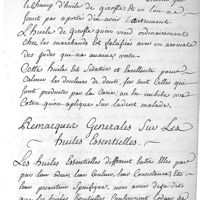 le champ d'huile de girofle &c on le
font pas aporté d'en avoir l'autrement.
L'huile de Girofle qu'on vend ordinairement
chez les marchands est falsifiée avec
des qui aucune vertu.
Cette huile est Sédative et Excellente pour
calmer les douleurs de dents, sur tout Celles qui
sont produites par la Carie, on en imbibe un
Coton qu'on aplique sur la dent malade.
Remarques Generales Sur Les
huiles Essentielles.
Les huiles Essentielles different entre Elles par
par leur odeur, leur Couleur, leur Consistence, et
leur pesanteur Spécifique, nous avons déja dit
que les huiles Essentielles